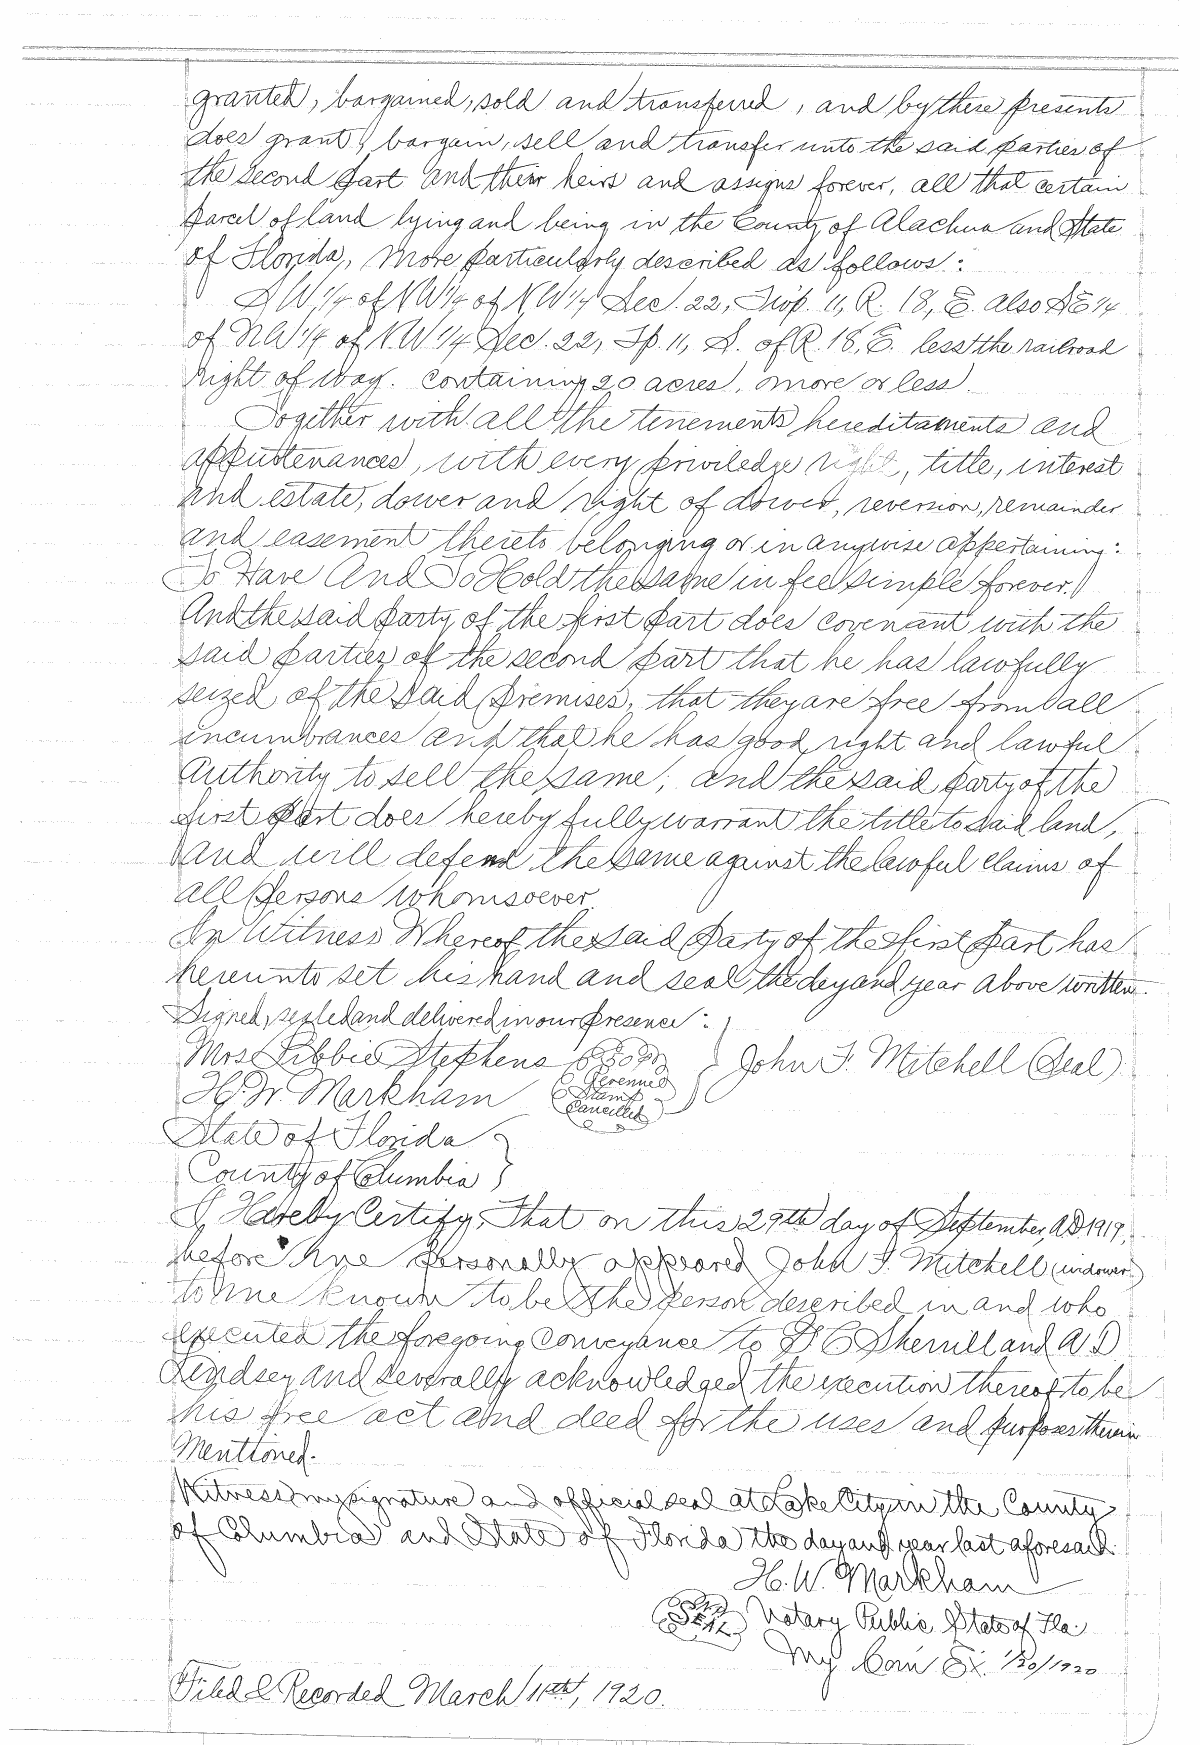 granted, bargained, sold and transferred, and by these presents
does grant, bargain, sell and transfer unto the said parties of
the second part and their heirs and assigns forever, all that certain
parcel of land lying and being in the County of Alachua and State
of Florida, More particularly described as follows:
SW1/4 of NW1/4 of NW1/4 Sec. 22, Twp. 11, R. 18, E. also SE1/4
of NW1/4 of NW1/4 Sec. 22, Tp. 11, S. of R. 18, E. less the railroad
right of way. containing 20 acres, more or less.
Together with all the tenements hereditaments and
appurtenances, with every priviledge right, title, interest
and estate, dower and right of dower, reversion, remainder
and easement thereto belonging or in anywise appertaining:
To Have And To Hold the same in fee simple forever.
And the said party of the first part does covenant with the
said parties of the second part that he has lawfully
seized of the said premises, that they are free from all
incumbrances and that he has good right and lawful
authority to sell the same; and the said party of the
first part does hereby fully warrant the title to said land,
and will defend the same against the lawful claims of
all persons whomsoever.
In Witness Whereof the said party of the first part has
hereunto set his hand and seal the day and year above written.
Signed, sealed and delivered in our presence:
Mrs Libbie Stephens
John F. Mitchell (Seal)
H. W. Markham
Revenue
Stamp
Cancelled
State of Florida
County of Columbia
I, Hereby Certify, That on this 29th day of September, A.D. 1919,
before me personally appeared John F. Mitchell (widower)
to me known to be the person described in and who
executed the foregoing conveyance to D C Sherrill and A. D
Lindsey and severally acknowledged the execution thereof to be
his free act and deed for the uses and purposes therein
mentioned.
Witness my signature and official seal at Lake City in the County
of Columbia and State of Florida the day and year last aforesaid.
H. W. Markham
SEAL
Notary Public, State of Fla.
My Com Ex. 1/20/1920
Filed & Recorded March 11th, 1920.